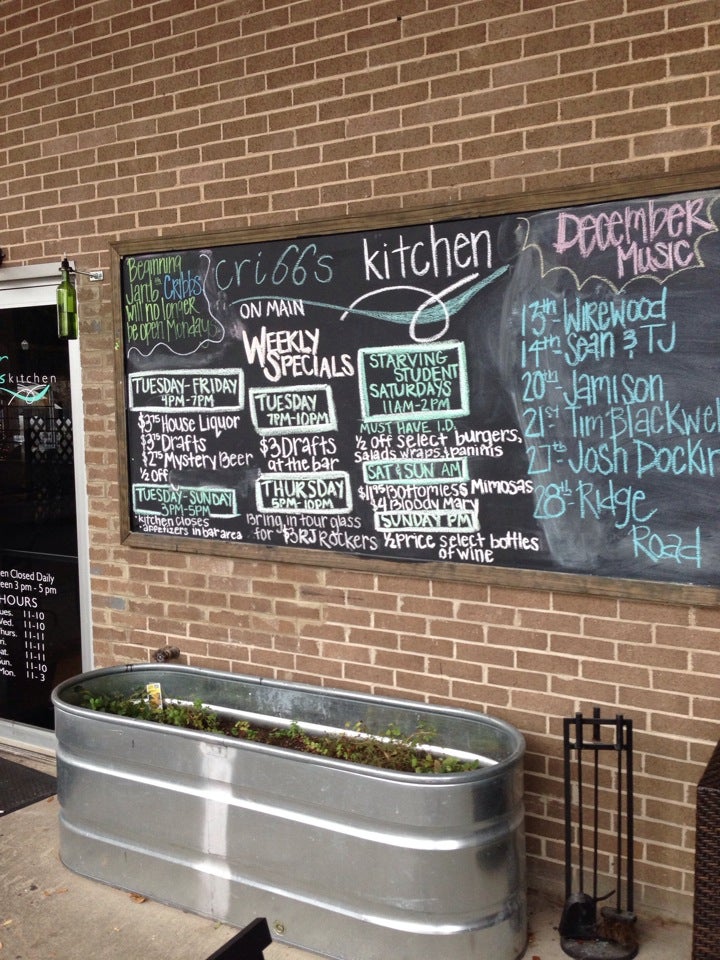 Beginning
Jan 6th Cribbs
will no longer
be open Mondays
cribbs kitchen
ON MAIN
WEEKLY
SPECIALS
TUESDAY-FRIDAY
4PM-7PM
$3.75 House Liquor
$3.75 Drafts
$2.75 Mystery Beer
½ Off
TUESDAY-SUNDAY
3PM-5PM
*kitchen closes
*appetizers in bar area
TUESDAY
7PM-10PM
$3 Drafts
at the bar
THURSDAY
5PM-10PM
Bring in your glass
for $3 RJ Rockers
STARVING
STUDENT
SATURDAYS
11AM-2PM
MUST HAVE I.D.
½ off select burgers,
salads, wraps, & paninis
SAT & SUN AM
$11.95 Bottomless Mimosas
$4 Bloody Mary
SUNDAY PM
½ Price select bottles
of wine
December
Music
13th- Wirewood
14th- Sean & TJ
20th- Jamison
21st- Tim Blackwel
27th- Josh Dockin
28th- Ridge
Road
kitchen
en Closed Daily
een 3 pm - 5 pm
HOURS
ues. 11-10
Wed. 11-10
hurs. 11-11
ri. 11-11
Sat. 11-11
Sun. 11-10
Mon. 11-3